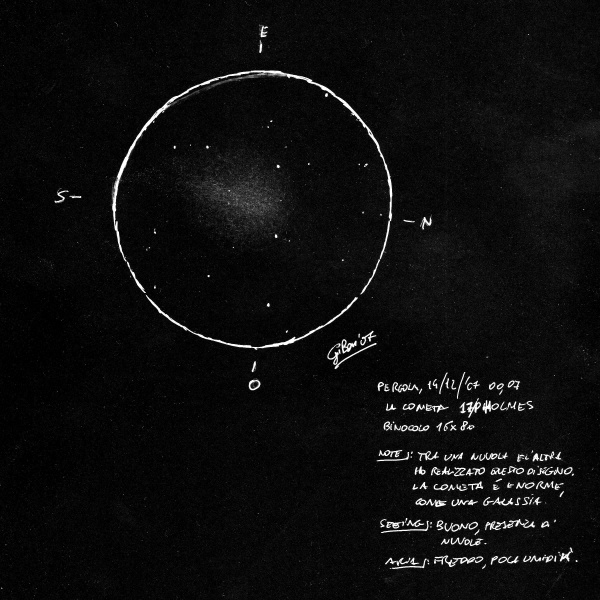 E
S -
- N
O
PERGOLA, 14/12/'07 00,07
LA COMETA 17/P HOLMES
BINOCOLO 16x80
NOTE: TRA UNA NUVOLA E L'ALTRA
HO REALIZZATO QUESTO DISEGNO.
LA COMETA É ENORME,
COME UNA GALASSIA.
SEEING: BUONO, PRESENZA DI
NUVOLE.
ARIA: FREDDO, POCA UMIDITÀ.